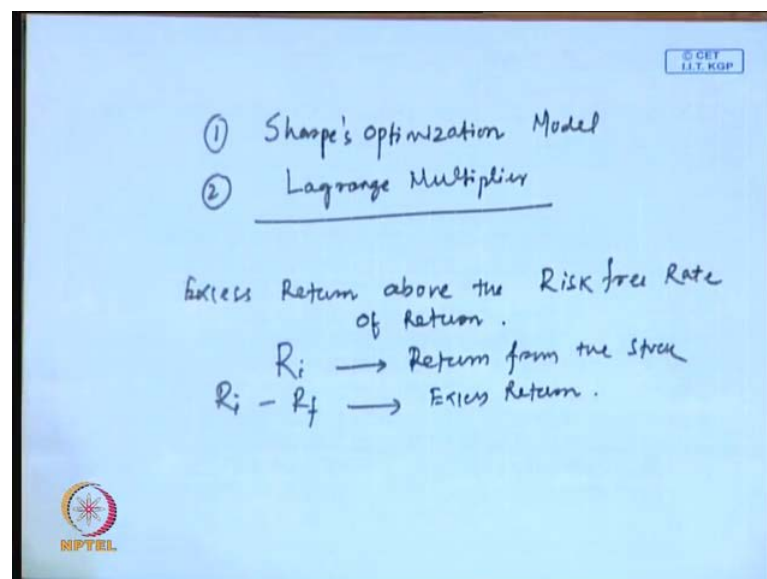 © CET
I.I.T. KGP
① Sharpe's Optimization Model
② Lagrange Multiplier
Excess Return above the Risk free Rate
Of Return.
Ri → Return from the Stock
Ri - Rf → Excess Return.
NPTEL